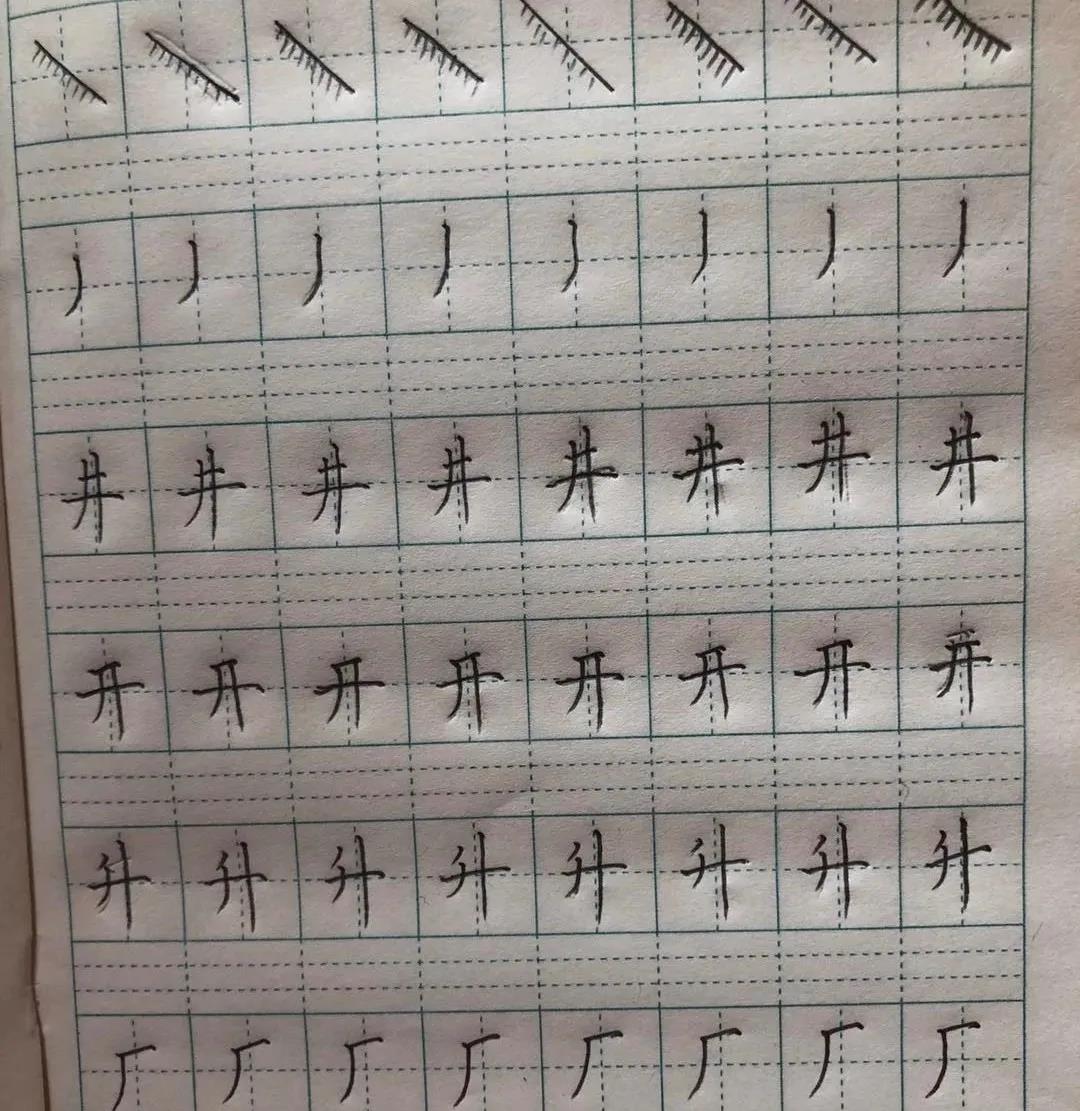 丿 丿 丿 丿 丿 丿 丿 丿
井 井 井 井 井 井 井 井
开 开 开 开 开 开 开 开
升 升 升 升 升 升 升 升
厂 厂 厂 厂 厂 厂 厂 厂